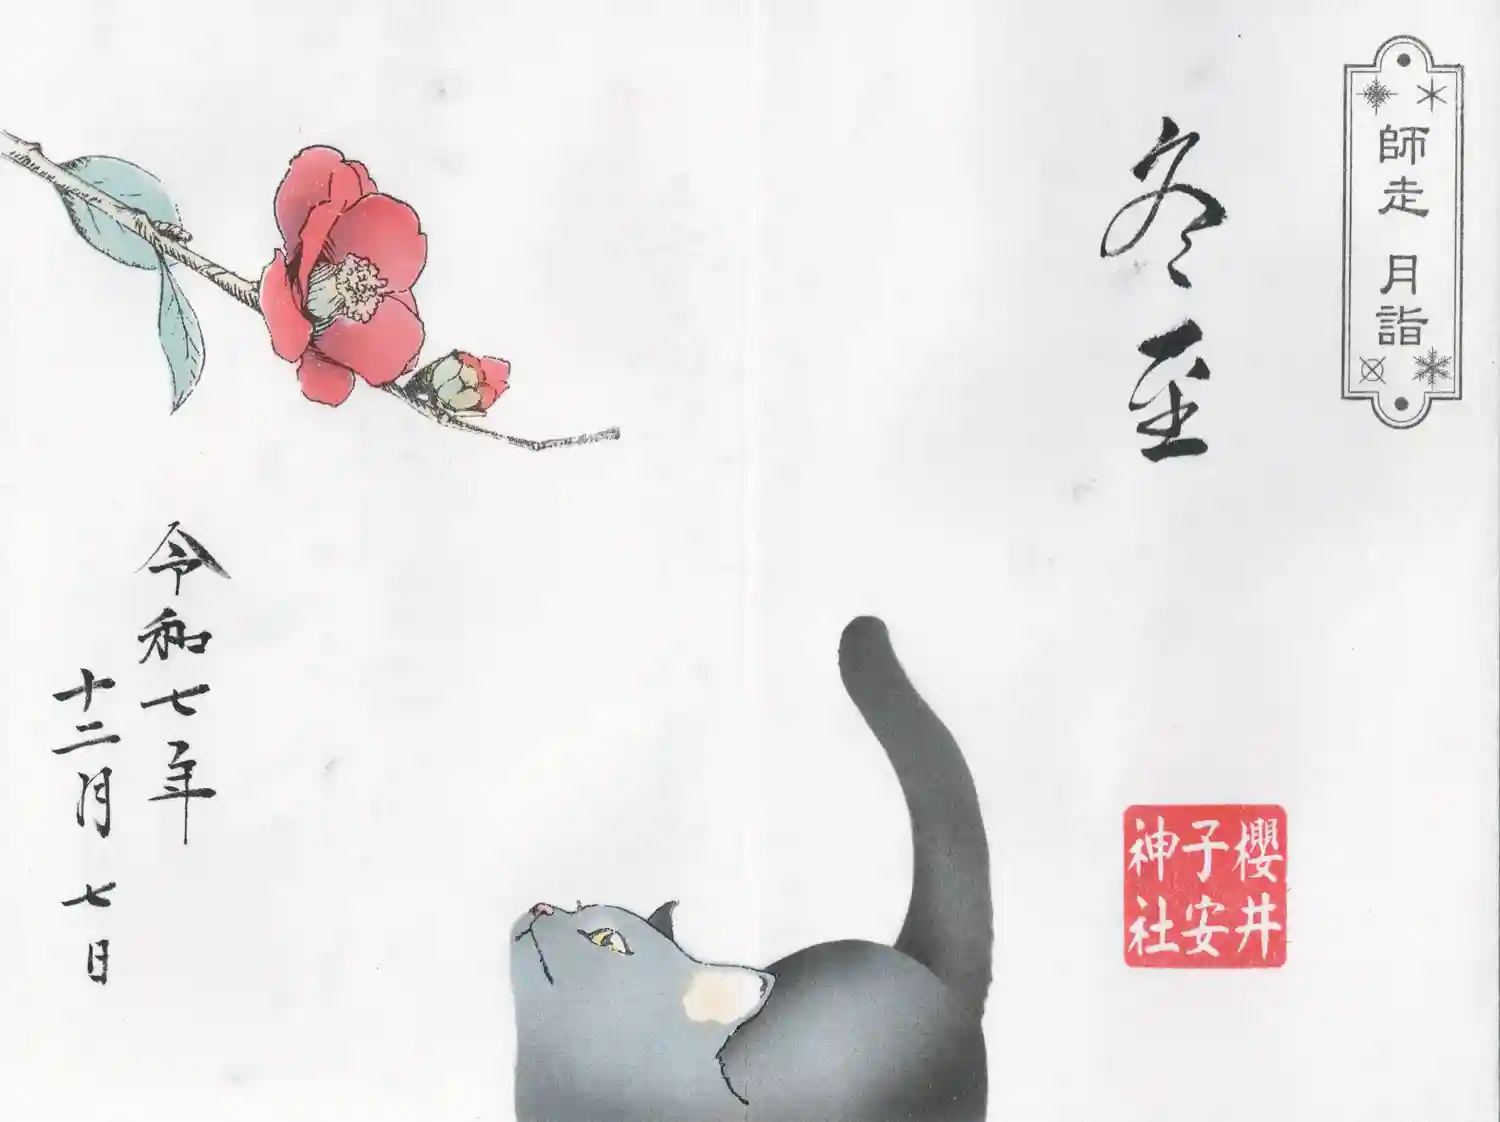 師走 月詣
冬至
櫻井
子安
神社
令和七年
十二月七日